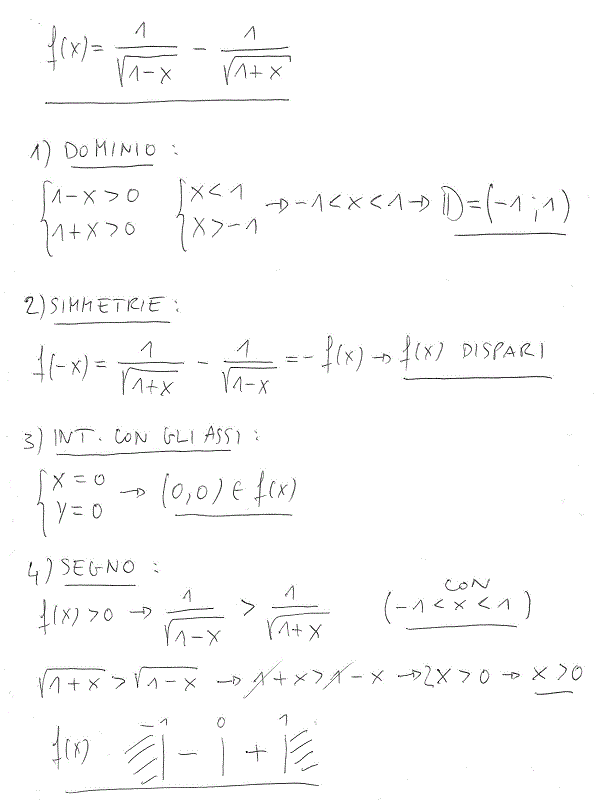 f(x) = 1/√(1-x) - 1/√(1+x)
1) DOMINIO :
{1-x>0 {x<1 → -1<x<1 → D=(-1;1)
{1+x>0 {x>-1
2) SIMMETRIE :
f(-x) = 1/√(1+x) - 1/√(1-x) = -f(x) → f(x) DISPARI
3) INT. CON GLI ASSI :
{x=0 → (0,0) ∈ f(x)
{y=0
4) SEGNO :
f(x)>0 → 1/√(1-x) > 1/√(1+x) CON (-1<x<1)
√(1+x) > √(1-x) → 1+x>1-x → 2x>0 → x>0
-1 0 1
f(x) | - | + |